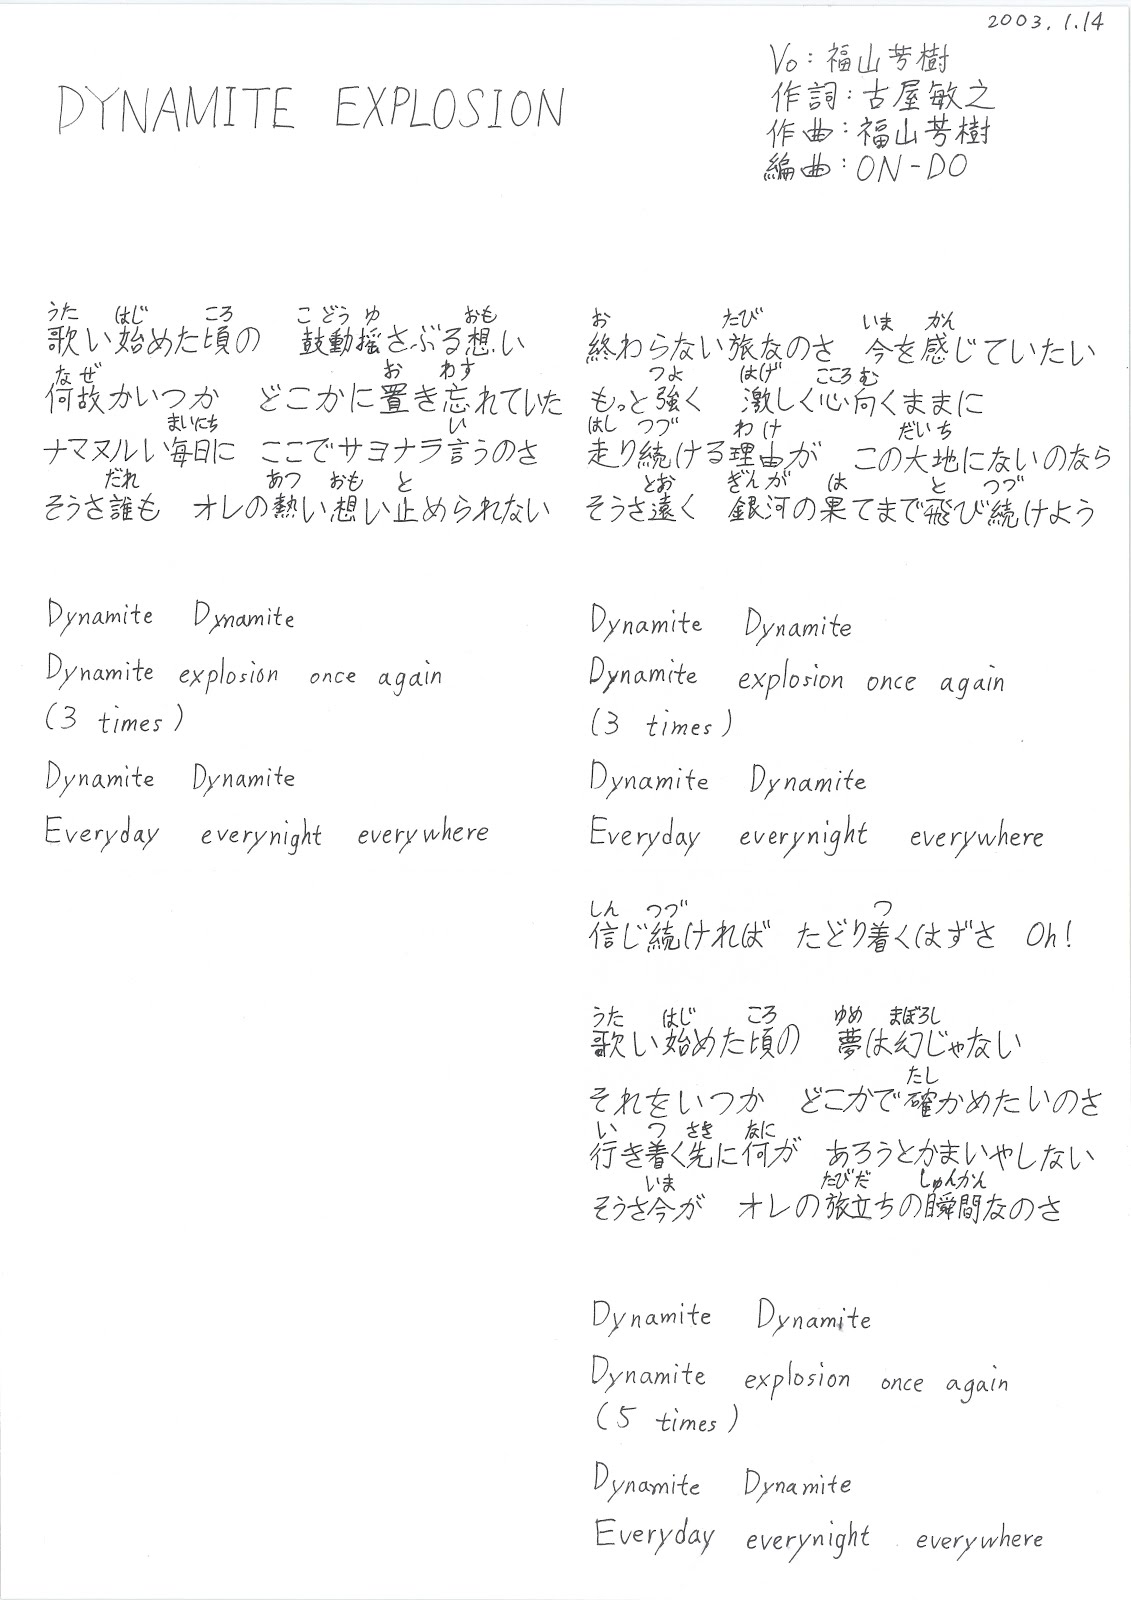 2003.1.14
DYNAMITE EXPLOSION
Vo:福山芳樹
作詞:古屋敏之
作曲:福山芳樹
編曲:ON-DO
うた はじ ころ こ どう ゆ おも
歌い始めた頃の 鼓動揺さぶる想い
な ぜ お わす
何故かいつか どこかに置き忘れていた
まいにち い
ナマヌルい毎日に ここでサヨナラ言うのさ
だれ あつ おも と
そうさ誰も オレの熱い想い止められない
Dynamite Dynamite
Dynamite explosion once again
(3 times)
Dynamite Dynamite
Everyday everynight everywhere
お たび いま かん
終わらない旅なのさ 今を感じていたい
つよ はげ こころ む
もっと強く 激しく心向くままに
はし つづ わ け だい ち
走り続ける理由が この大地にないのなら
とお ぎん が は と つづ
そうさ遠く 銀河の果てまで飛び続けよう
Dynamite Dynamite
Dynamite explosion once again
(3 times)
Dynamite Dynamite
Everyday everynight everywhere
しん つづ つ
信じ続ければ たどり着くはずさ Oh!
うた はじ ころ ゆめ まぼろし
歌い始めた頃の 夢は幻じゃない
たし
それをいつか どこかで確かめたいのさ
い つ さき なに
行き着く先に何が あろうとかまいやしない
いま たび だ しゅんかん
そうさ今が オレの旅立ちの瞬間なのさ
Dynamite Dynamite
Dynamite explosion once again
(5 times)
Dynamite Dynamite
Everyday everynight everywhere